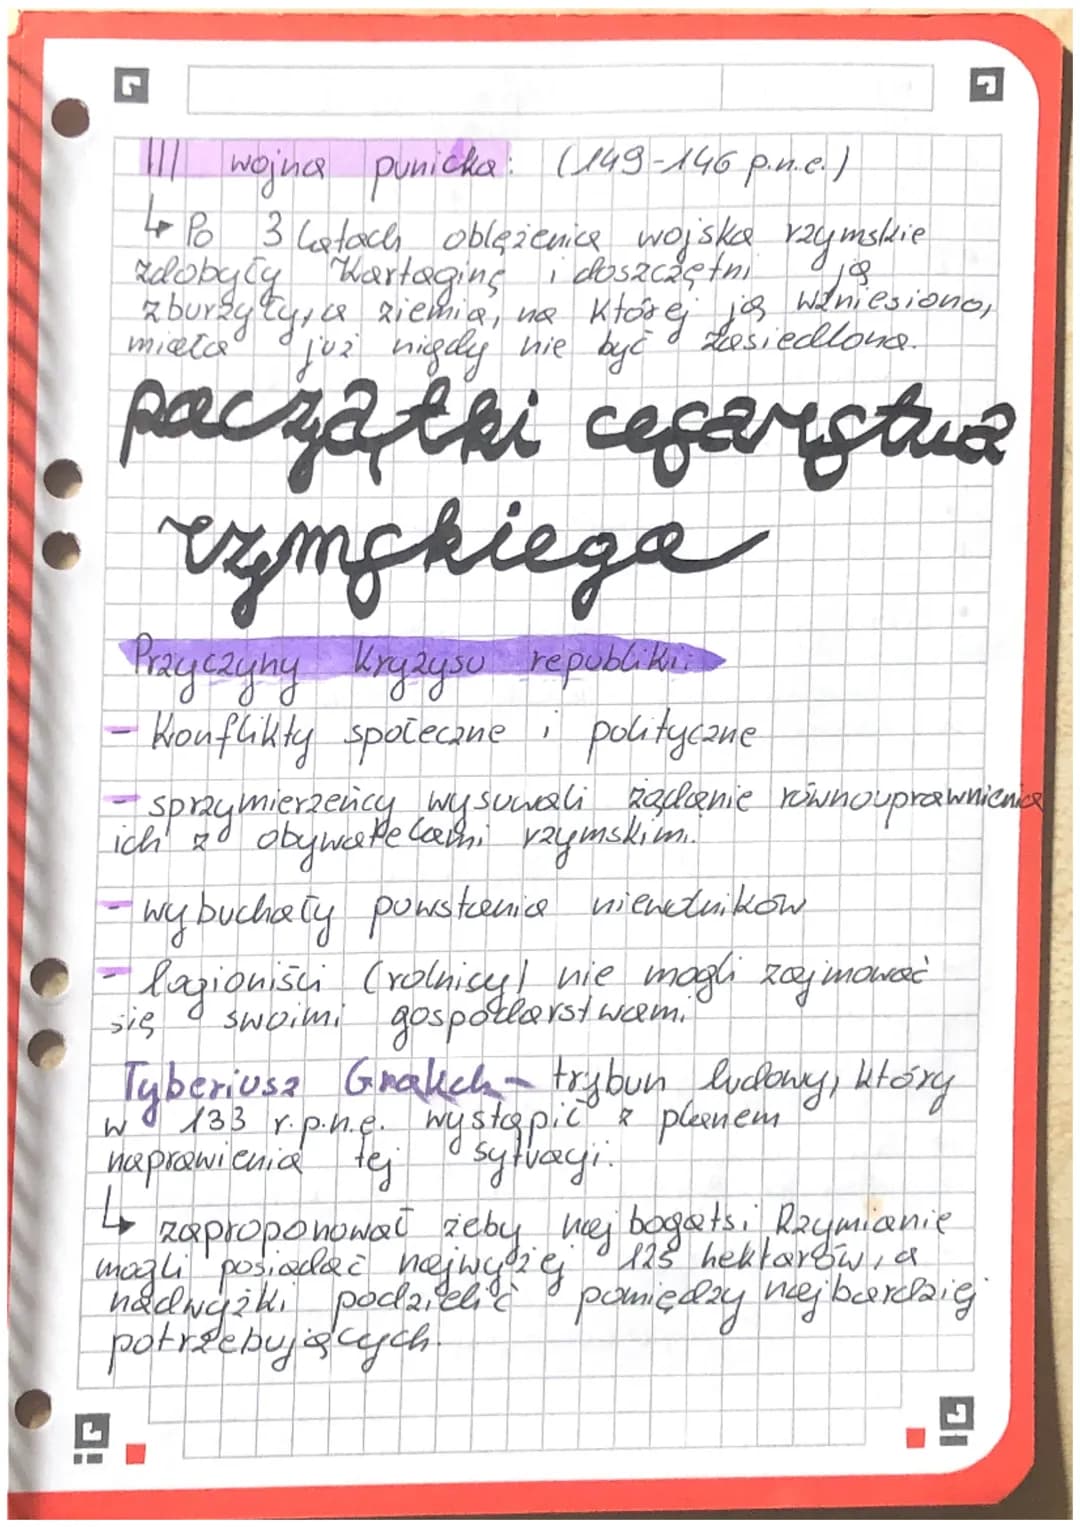 III wojna punicka: (149-146 p.n.e.)
↳ Po 3 latach oblężenia wojska rzymskie
zdobyły Kartaginę i doszczętni ją
zburzyły, a ziemia, na której ją wzniesiono,
miała już nigdy nie być zasiedlona.
początki cesarstwa
rzymskiego
Przyczyny kryzysu republiki:
- Konflikty społeczne i polityczne
- sprzymierzeńcy wysuwali żądanie równouprawnienia
ich z obywatelami rzymskimi.
- wybuchały powstania niewolników
- legioniści (rolnicy) nie mogli zajmować
się swoimi gospodarstwami
Tyberiusz Grakch - trybun ludowy, który
w 133 r.p.n.e. wystąpił z planem
naprawienia tej sytuacji.
↳ zaproponował żeby najbogatsi Rzymianie
mogli posiadać najwyżej 125 hektarów, a
nadwyżki podzielić pomiędzy najbardziej
potrzebujących.